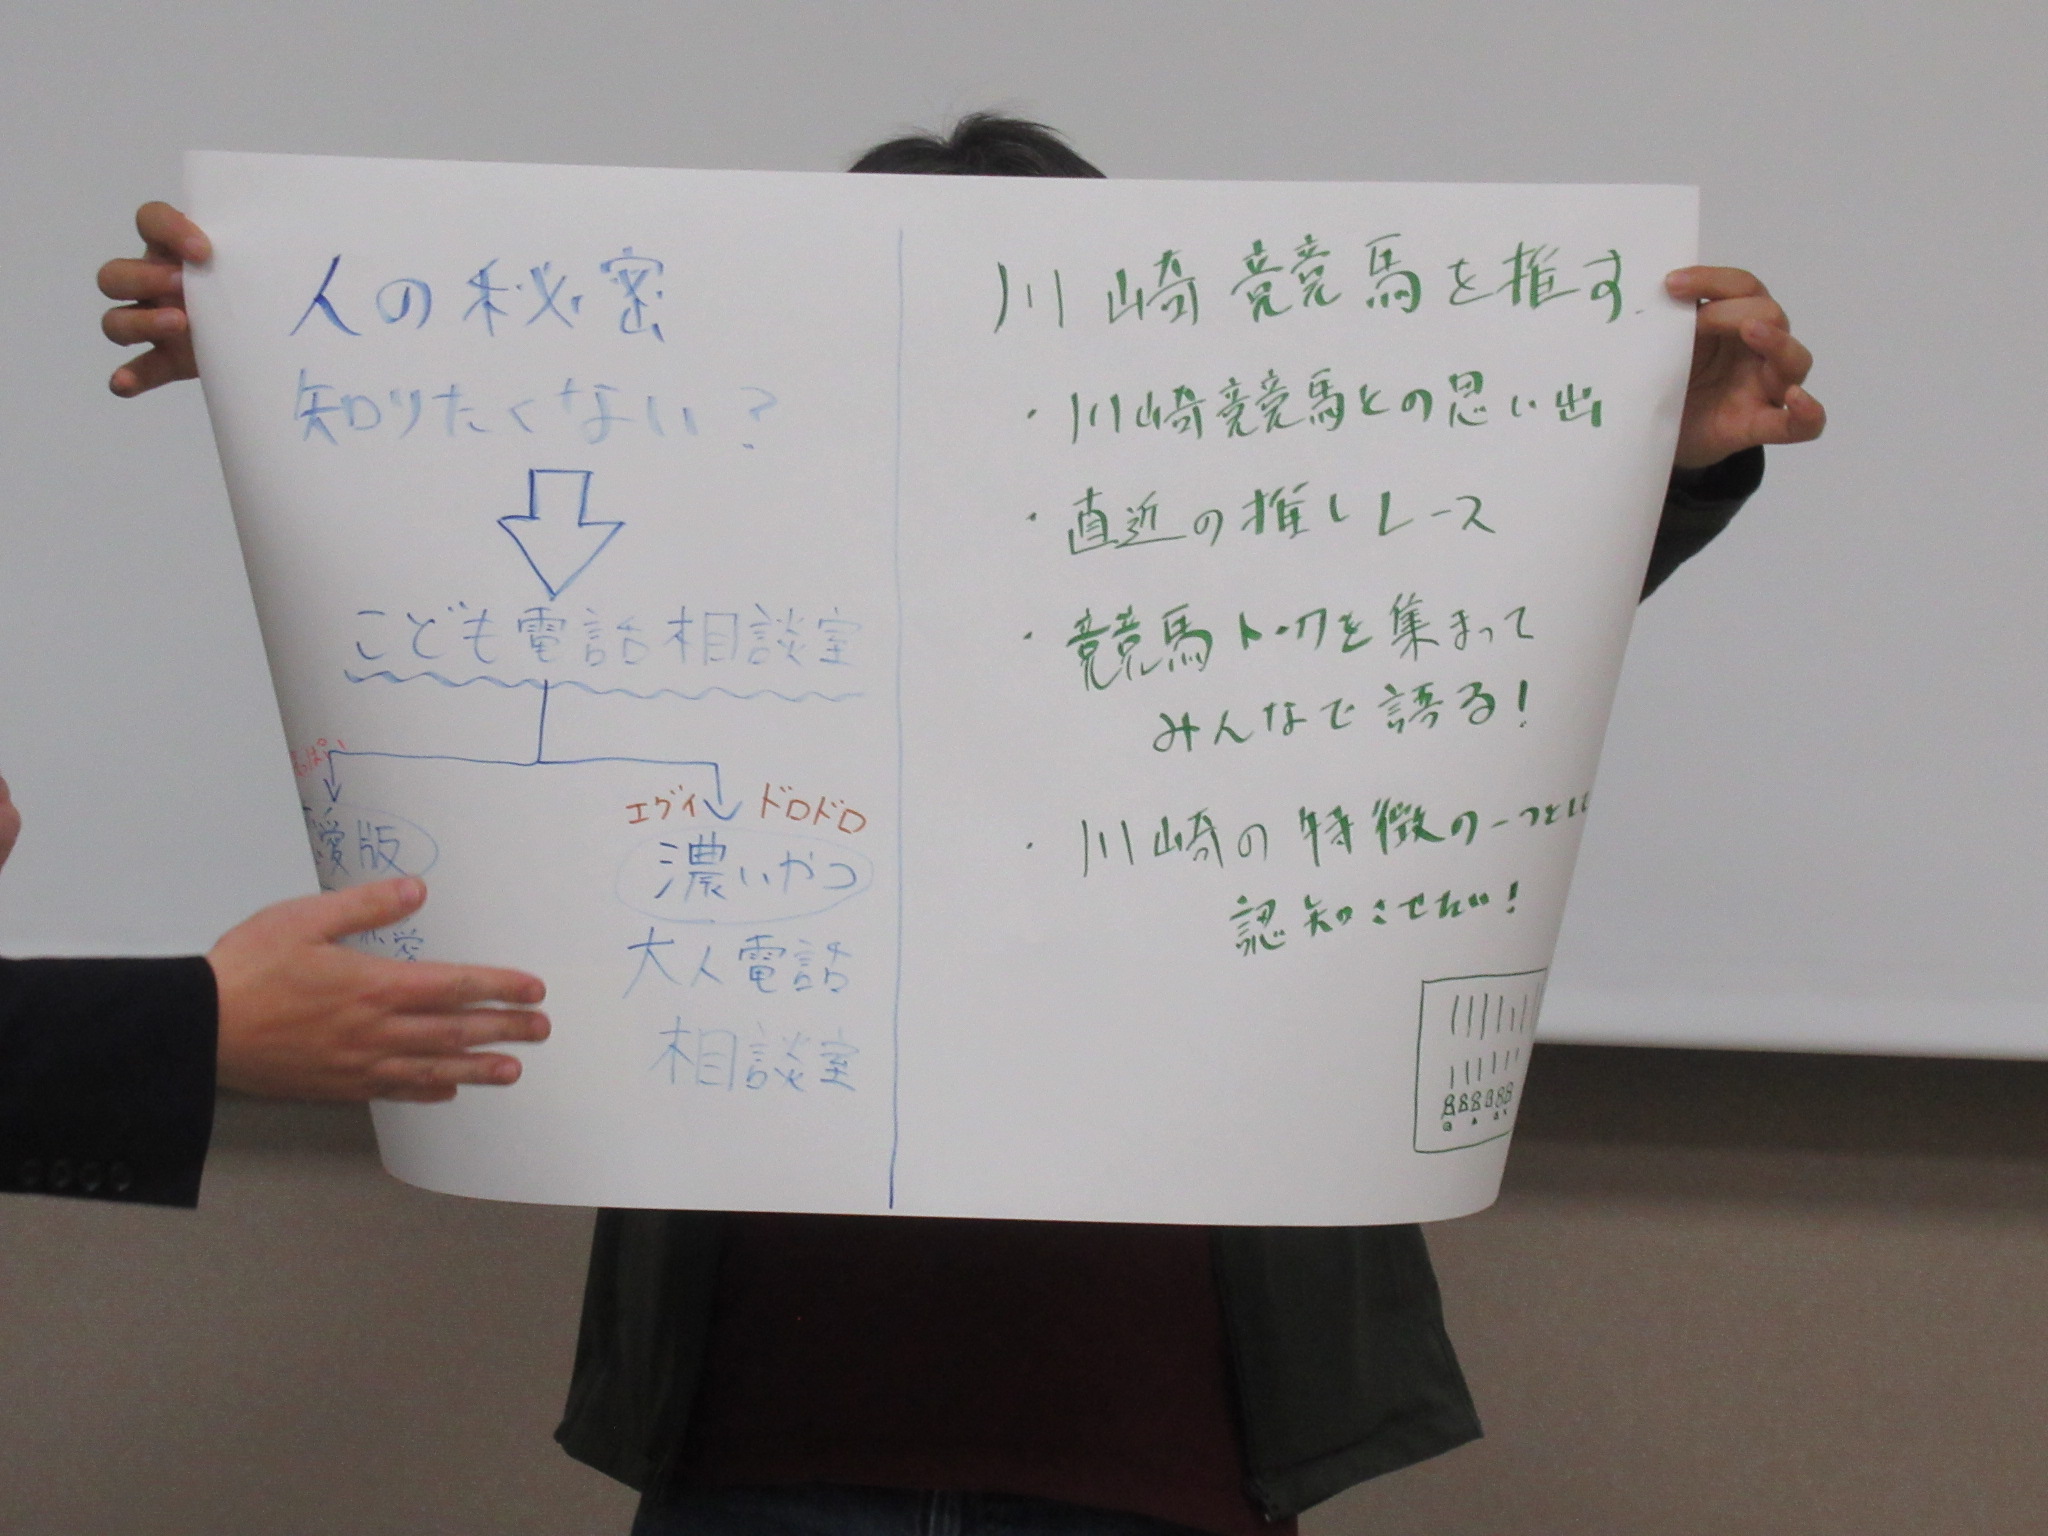 人の秘密
知りたくない?
こども電話相談室
っぱい
愛版
恋愛
エグイ ドロドロ
濃いやつ
大人電話
相談室
川崎競馬を推す.
・川崎競馬との思い出
・直近の推しレース
・競馬トークを集まって
みんなで語る!
・川崎の特徴の一つとして
認知させたい!